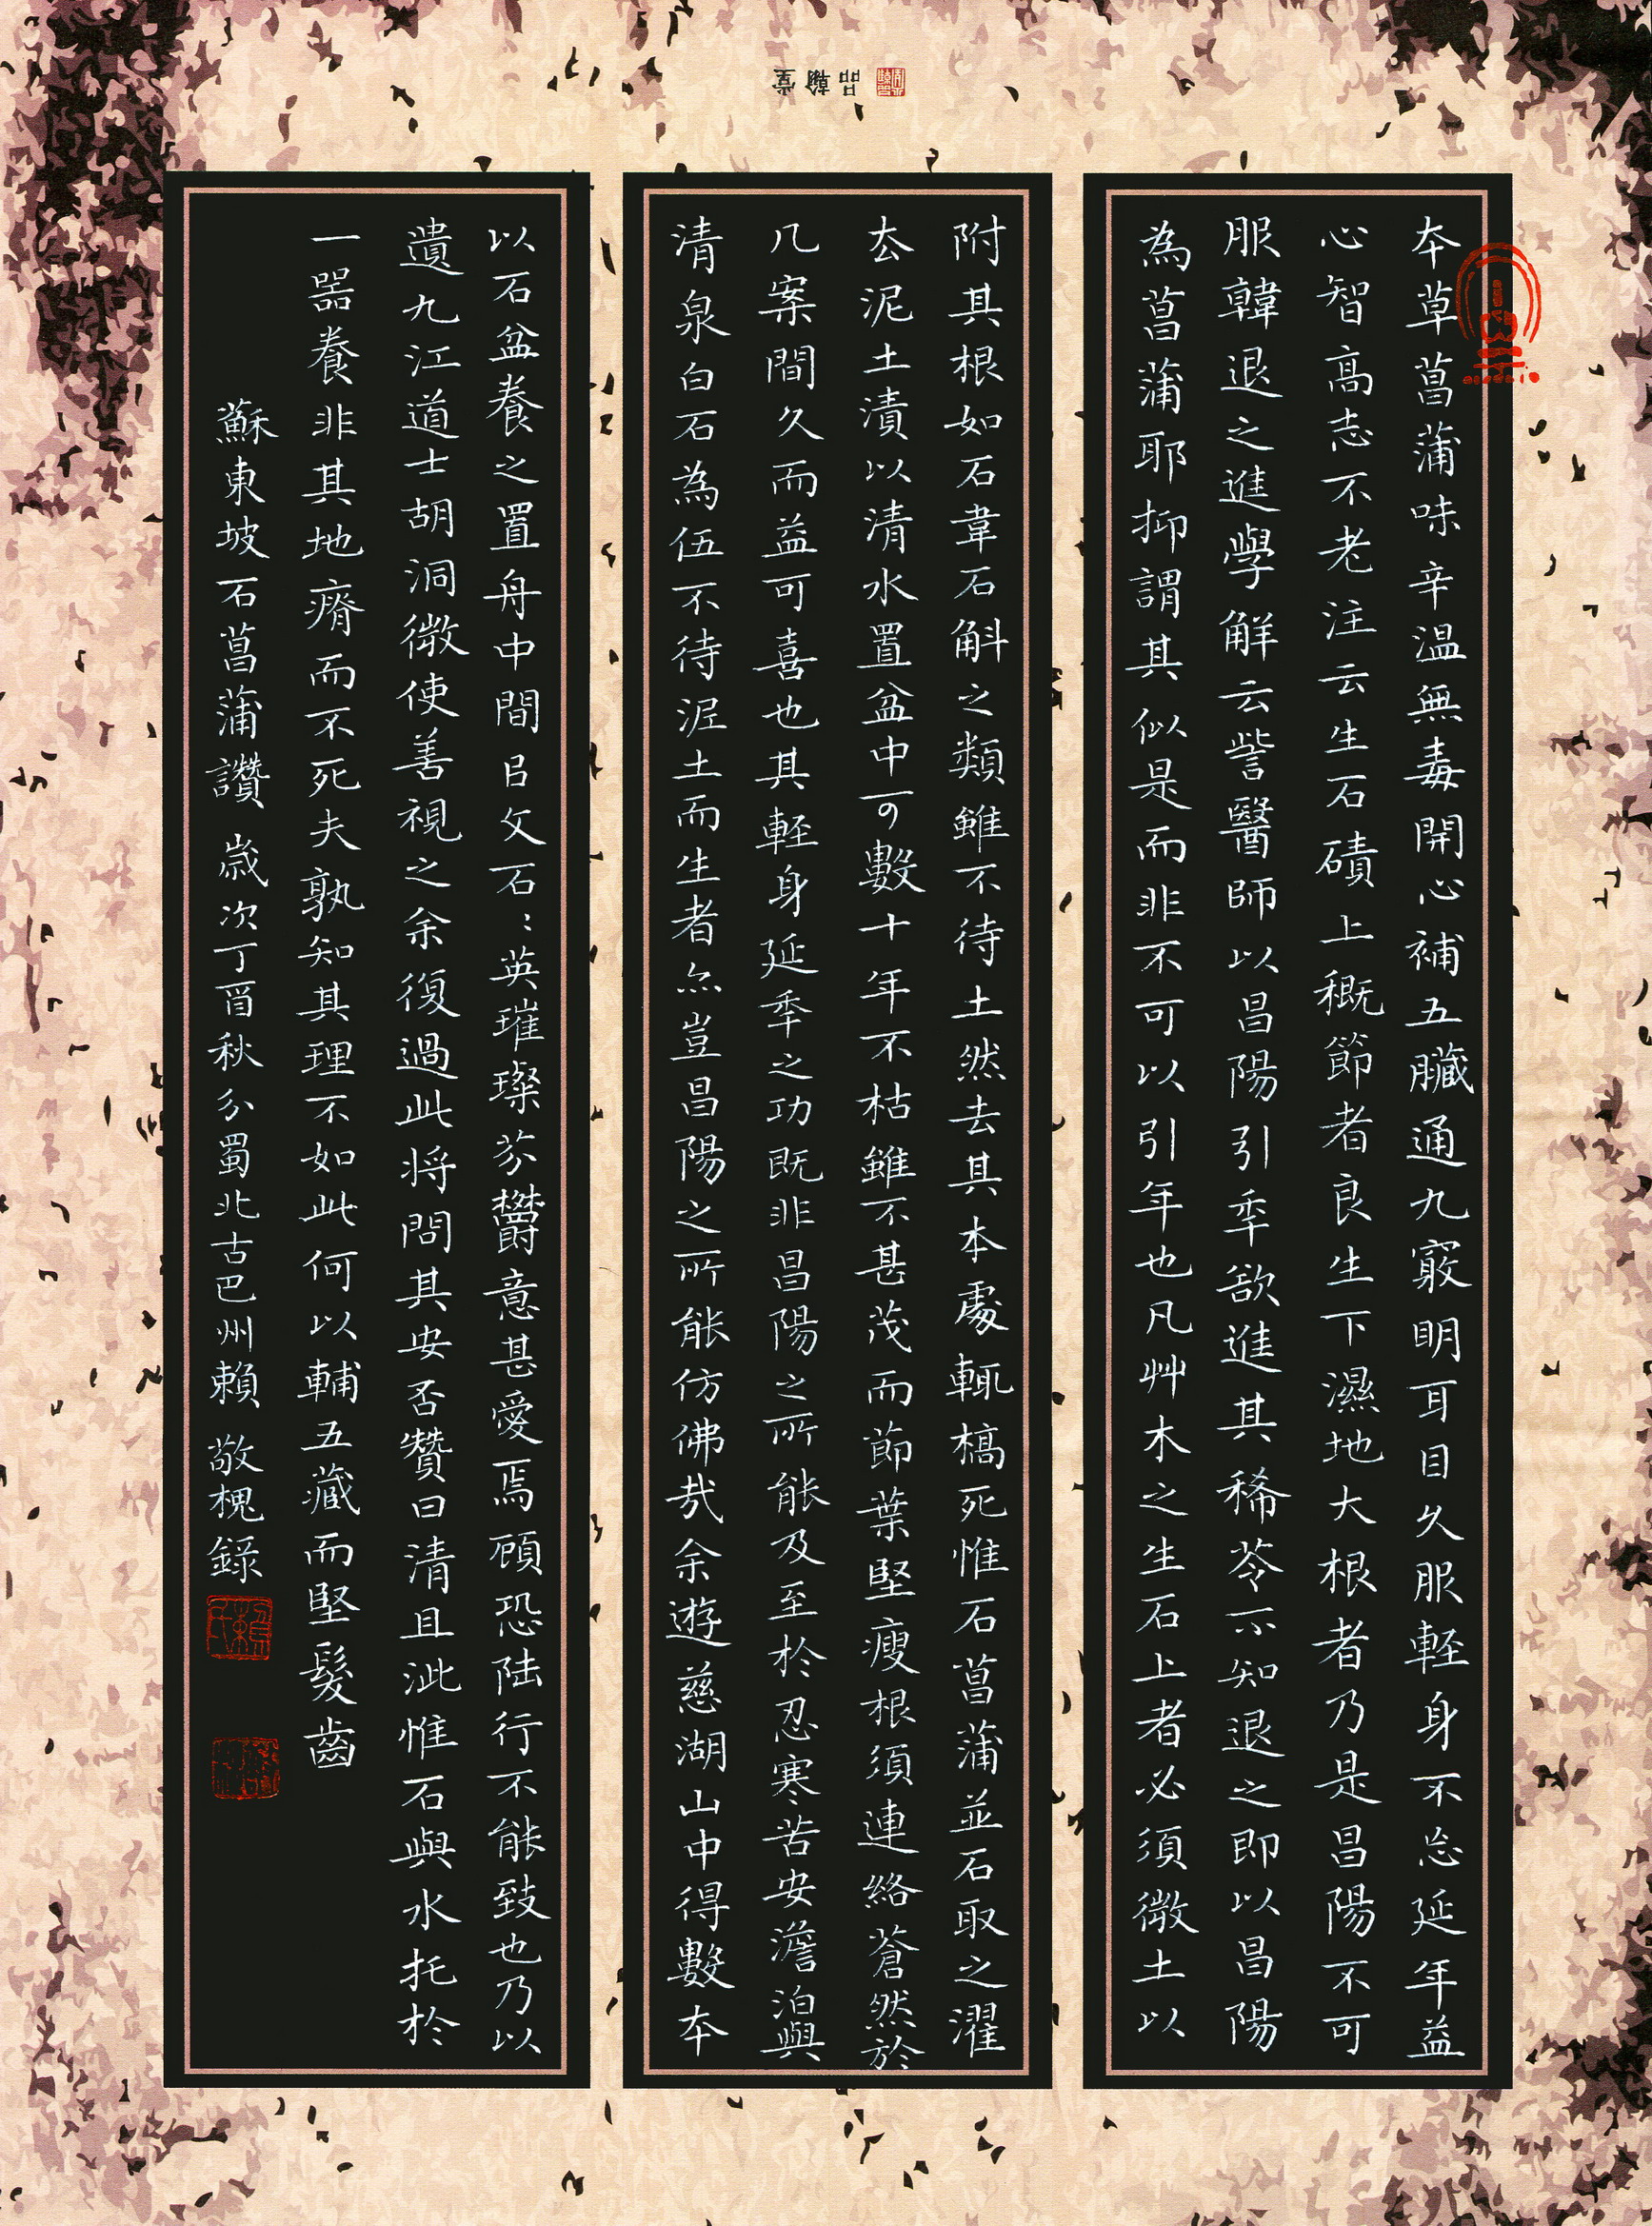 本草菖蒲味辛温無毒開心補五臟通九竅明耳目久服輕身不忘延年益
心智高志不老注云生石磧上穊節者良生下濕地大根者乃是昌陽不可
服韓退之進學解云訾醫師以昌陽引秊欲進其豨苓不知退之即以昌陽
為菖蒲耶抑謂其似是而非不可以引年也凡艸木之生石上者必須微土以
附其根如石韋石斛之類雖不待土然去其本處輒槁死惟石菖蒲並石取之濯
去泥土漬以清水置盆中可數十年不枯雖不甚茂而節葉堅瘦根須連絡蒼然於
几案間久而益可喜也其輕身延秊之功既非昌陽之所能及至於忍寒苦安澹泊與
清泉白石為伍不待泥土而生者亦豈昌陽之所能仿佛哉余遊慈湖山中得數本
以石盆養之置舟中間㠯文石:英璀璨芬鬱意甚愛焉顧恐陸行不能致也乃以
遺九江道士胡洞微使善視之余復過此將問其安否贊曰清且泚惟石與水托於
一器養非其地瘠而不死夫孰知其理不如此何以輔五藏而堅髮齒
蘇東坡石菖蒲讚 歲次丁酉秋分蜀北古巴州賴敬槐錄